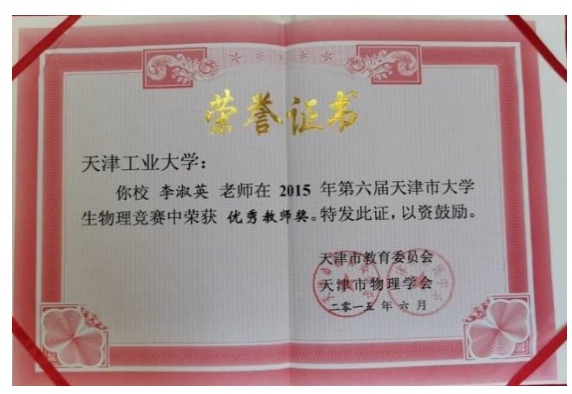 荣誉证书
天津工业大学：
你校 李淑英 老师在 2015 年第六届天津市大学
生物理竞赛中荣获 优秀教师奖。特发此证，以资鼓励。
天津市教育委员会
天津市物理学会
二零一五年六月